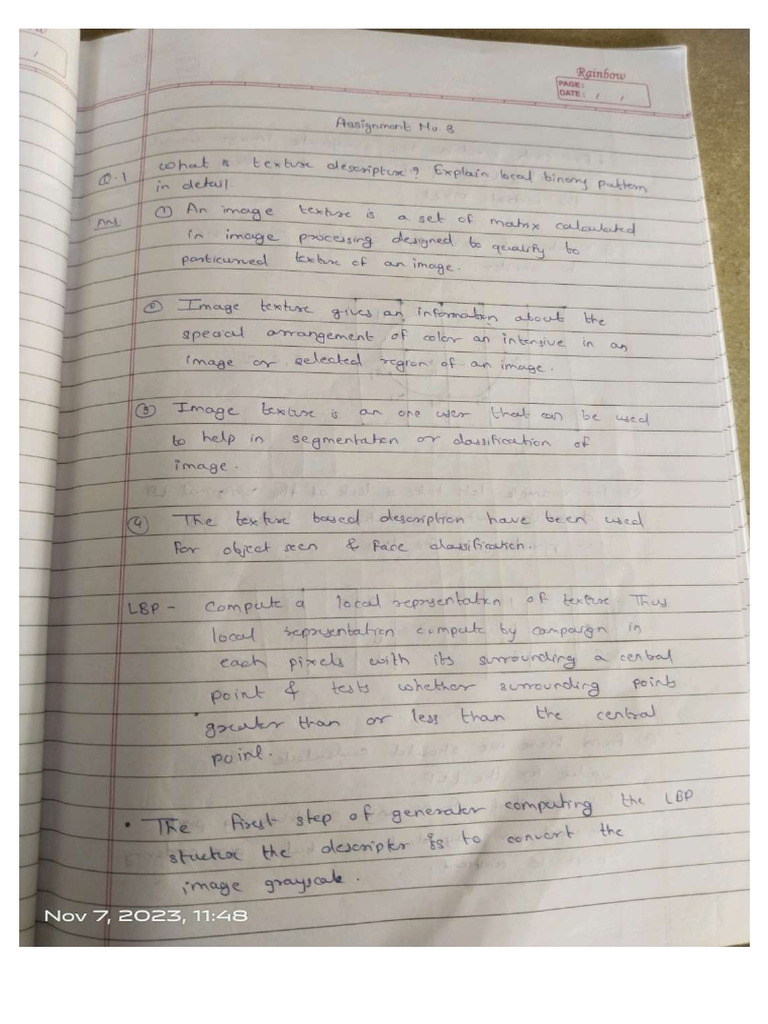 Rainbow
PAGE:
DATE: / /
Assignment No 8
Q.1 What is texture descripture? Explain local binary pattern
in detail
Ans ① An image texture is a set of matrix calculated
in image processing designed to qualify to
particurved texture of an image.
② Image texture gives an information about the
special arrangement of color an intensive in an
image or selected region of an image.
③ Image texture is an one user that can be used
to help in segmentation or classification of
image.
④ The texture based description have been used
for object seen & face classification.
LBP - Compute a local representation of texture Thus
local representation compute by campaign in
each pixels with its surrounding a central
point & tests whether surrounding points
greater than or less than the central
point.
• The first step of generater computing the LBP
the descripter is to convert the
image grayscale.
Nov 7, 2023, 11:48